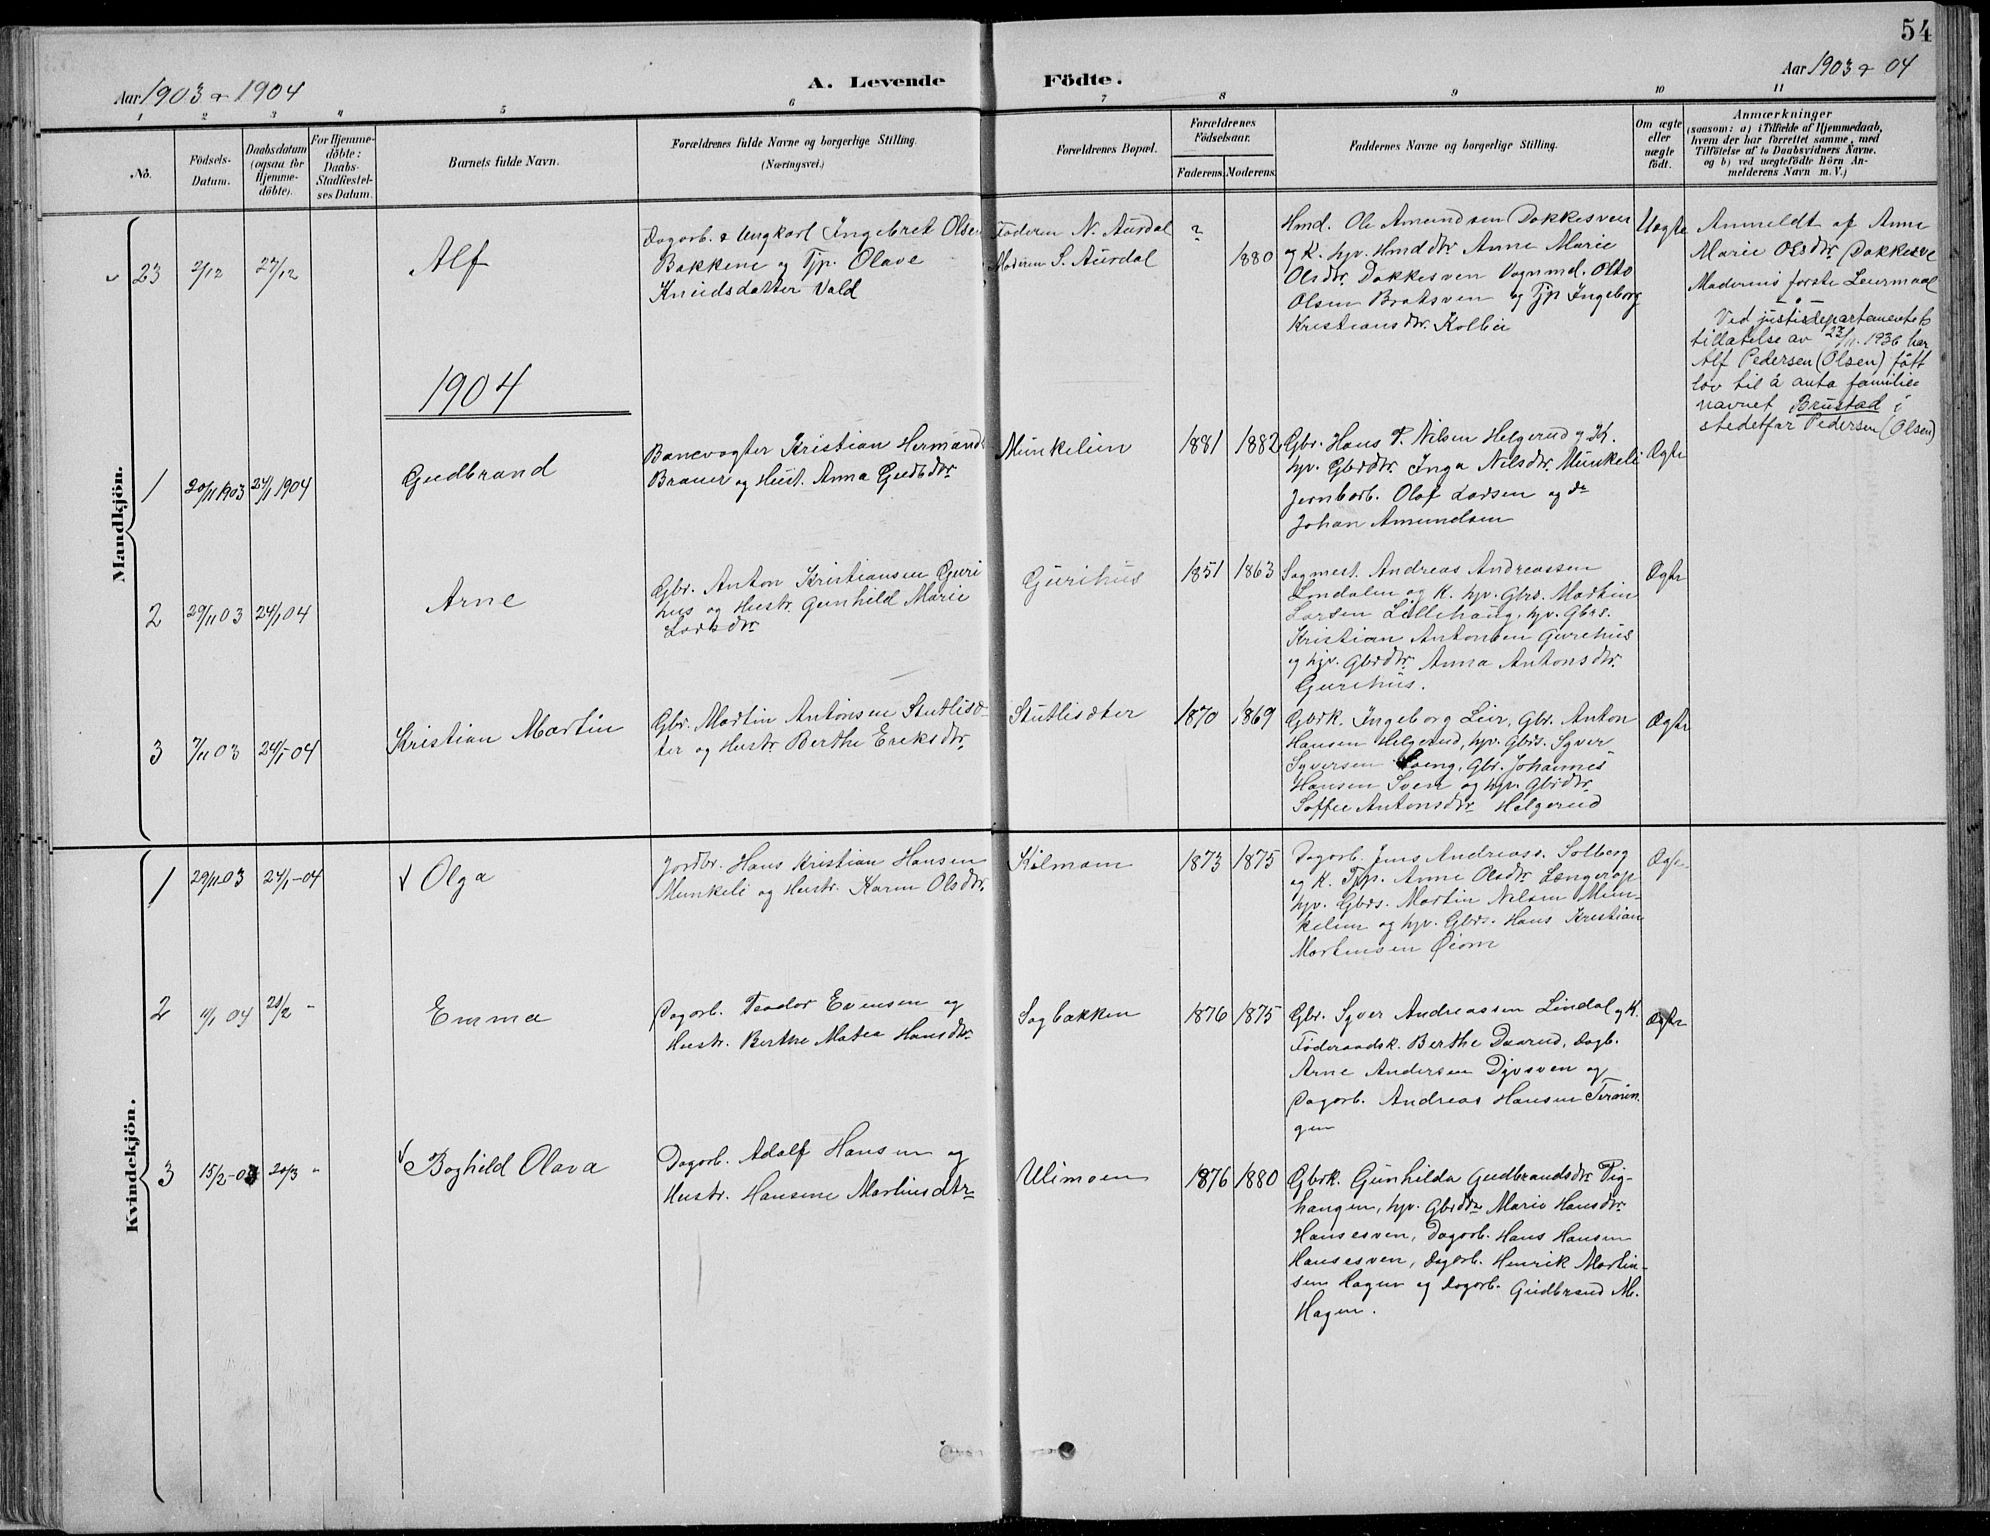 54
Aar 1903 & 1904
A. Levende
Födte.
Aar 1903 & 04
1 2 3 4 5 6 7 8 9 10 11
No.
Födsels-
Datum.
Daabsdatum
(ogsaa for
Hjemme-
döbte).
For Hjemme-
döbte:
Daabs-
Stadfæstel-
ses Datum.
Barnets fulde Navn.
Forældrenes fulde Navne og borgerlige Stilling.
(Næringsvei.)
Forældrenes Bopæl.
Forældrenes
Födselsaar.
Faderens.
Moderens.
Faddernes Navne og borgerlige Stilling.
Om ægte
eller
uægte
födt.
Anmærkninger
(saasom: a) i Tilfælde af Hjemmedaab,
hvem der har forrettet samme, med
Tilföielse af to Daabsvidners Navne.
og b) ved uægtefödte Börn An-
melderens Navn m. V.)
Mandkjön.
23
2/12
27/12
Alf
Dagarb. & Ungkarl Ingebret Olsen
Bakkene og Tjp. Olave
Knudsdatter Vold
Faderen N. Aurdal
Moderen S. Aurdal
?
1880
Hmd. Ole Amundsen Dokkesveen
og K. hjv. Hmddtr. Anne Marie
Olsdtr. Dokkesven Vognmd. Otto
Olsen Bratsven og Tjp Ingeborg
Kristiansdtr. Kolbu
Uægte
Anmeldt af Anne
Marie Olsdtr. Dokkesve
Moderens første Leiermaal
Ved justisdepartementets
tillatelse av 23/11.1936 har
Alf Pedersen (Olsen) fått
lov til å anta familie=
navnet Brustad i
stedetfor Pedersen (Olsen)
1904
1
20/11 1903
24/1 1904
Gudbrand
Banevogter Kristian Hermands.
Brauer og Hust. Anna Gudbdtr.
Munkelien
1881
1882
Gbr. Hans P. Nilsen Helgerud og K.
hjv. Gbrdtr. Inga Nilsdtr. Munkeli
Jernbarb. Olaf Larsen og do
Johan Amundsen
Ægte
2
29/11 03
24/1 04
Arne
Gbr. Anton Kristiansen Guri
hus og Hustr. Gunhild Marie
Larsdtr
Gurihus
1851
1863
Sagmest. Andreas Andreassen
Londalen og K. hjv. Gbrs. Martin
Larsen Lillehaug, hjv. Gbrs.
Kristian Antonsen Gurihus
og hjv. Gbrdtr. Anna Antonsdtr.
Gurihus.
Ægte
3
7/11 03
24/1-04
Kristian Martin
Gbr. Martin Antonsen Stutlisæ-
ter og Hustr Berthe Eriksdtr.
Stutlisæter
1870
1869
Gbrk. Ingeborg Lier, Gbr. Anton
Hansen Helgerud, hjv. Gbrs. Syver
Syversen Soeng, Gbr. Johannes
Hansen Sven og hjv. Gbrdtr.
Soffie Antonsdtr Helgerud
Ægte
Kvindekjön.
1
29/11 03
24/1-04
Olga
Jordbr. Hans Kristian Hansen
Munkeli og Hustr. Karen Olsdtr.
Kølmoen
1873
1875
Dagarb. Jens Andreass. Solberg
og K. Tjp. Anne Olsdtr. Længerop
hjv. Gbrs. Martin Nilsen Mun-
kelien og hjv. Gbrs. Hans Kristian
Martinsen Øiom
Ægte
2
11/1 04
28/2 -
Emma
Dagarb. Teodor Evensen og
Hustr. Berthe Matea Hansdtr.
Sagbakken
1876
1875
Gbr. Syver Andreassen Lindal og K.
Føderaadsk. Berthe Daarud, Dagb.
Arne Andersen Dybsven og
Dagarb. Andreas Hansen Teræn
gen
Ægte
3
15/2-03
20/3 -
Boghild Olava
Dagarb. Adolf Hansen og
Hustr. Hansine Martinsdtr
Ulimoen
1876
1880
Gbrk. Gunhilda Gudbrandsdtr. Dig-
hangen, hjv. Gbrdtr Marie Hansdtr.
Hansesven, Dagarb. Hans Hansen
Hansesven, Dagarb. Henrik Martin-
sen Hagen og Dagarb. Gudbrand M.
Hagen.